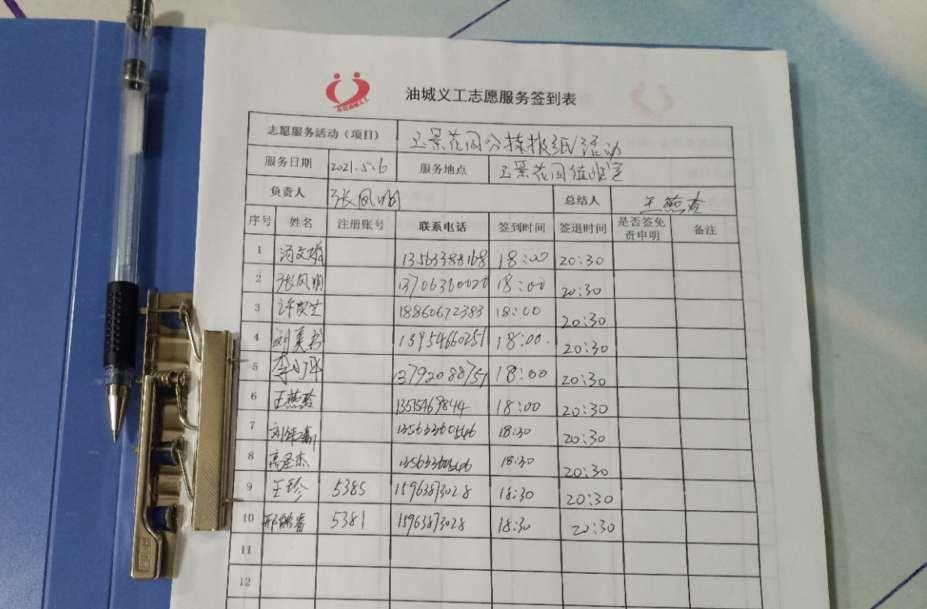 油城义工志愿服务签到表
志愿服务活动（项目） 玉景花园分拣报纸活动
服务日期 2021.5.6 服务地点 玉景花园值班室
负责人 张凤明 总结人 王燕玲
序号 姓名 注册账号 联系电话 签到时间 签退时间 是否签免责申明 备注
1 13563388168 18:00 20:30
2 张凤明 18:00 20:30
3 18860672383 18:00 20:30
4 13954660251 18:00 20:30
5 李小平 13792088751 18:00 20:30
6 王燕玲 13515469844 18:00 20:30
7 18:30 20:30
8 高圣杰 18:30 20:30
9 王珍 5385 15963873028 18:30 20:30
10 5381 15963873028 18:30 20:30
11
12